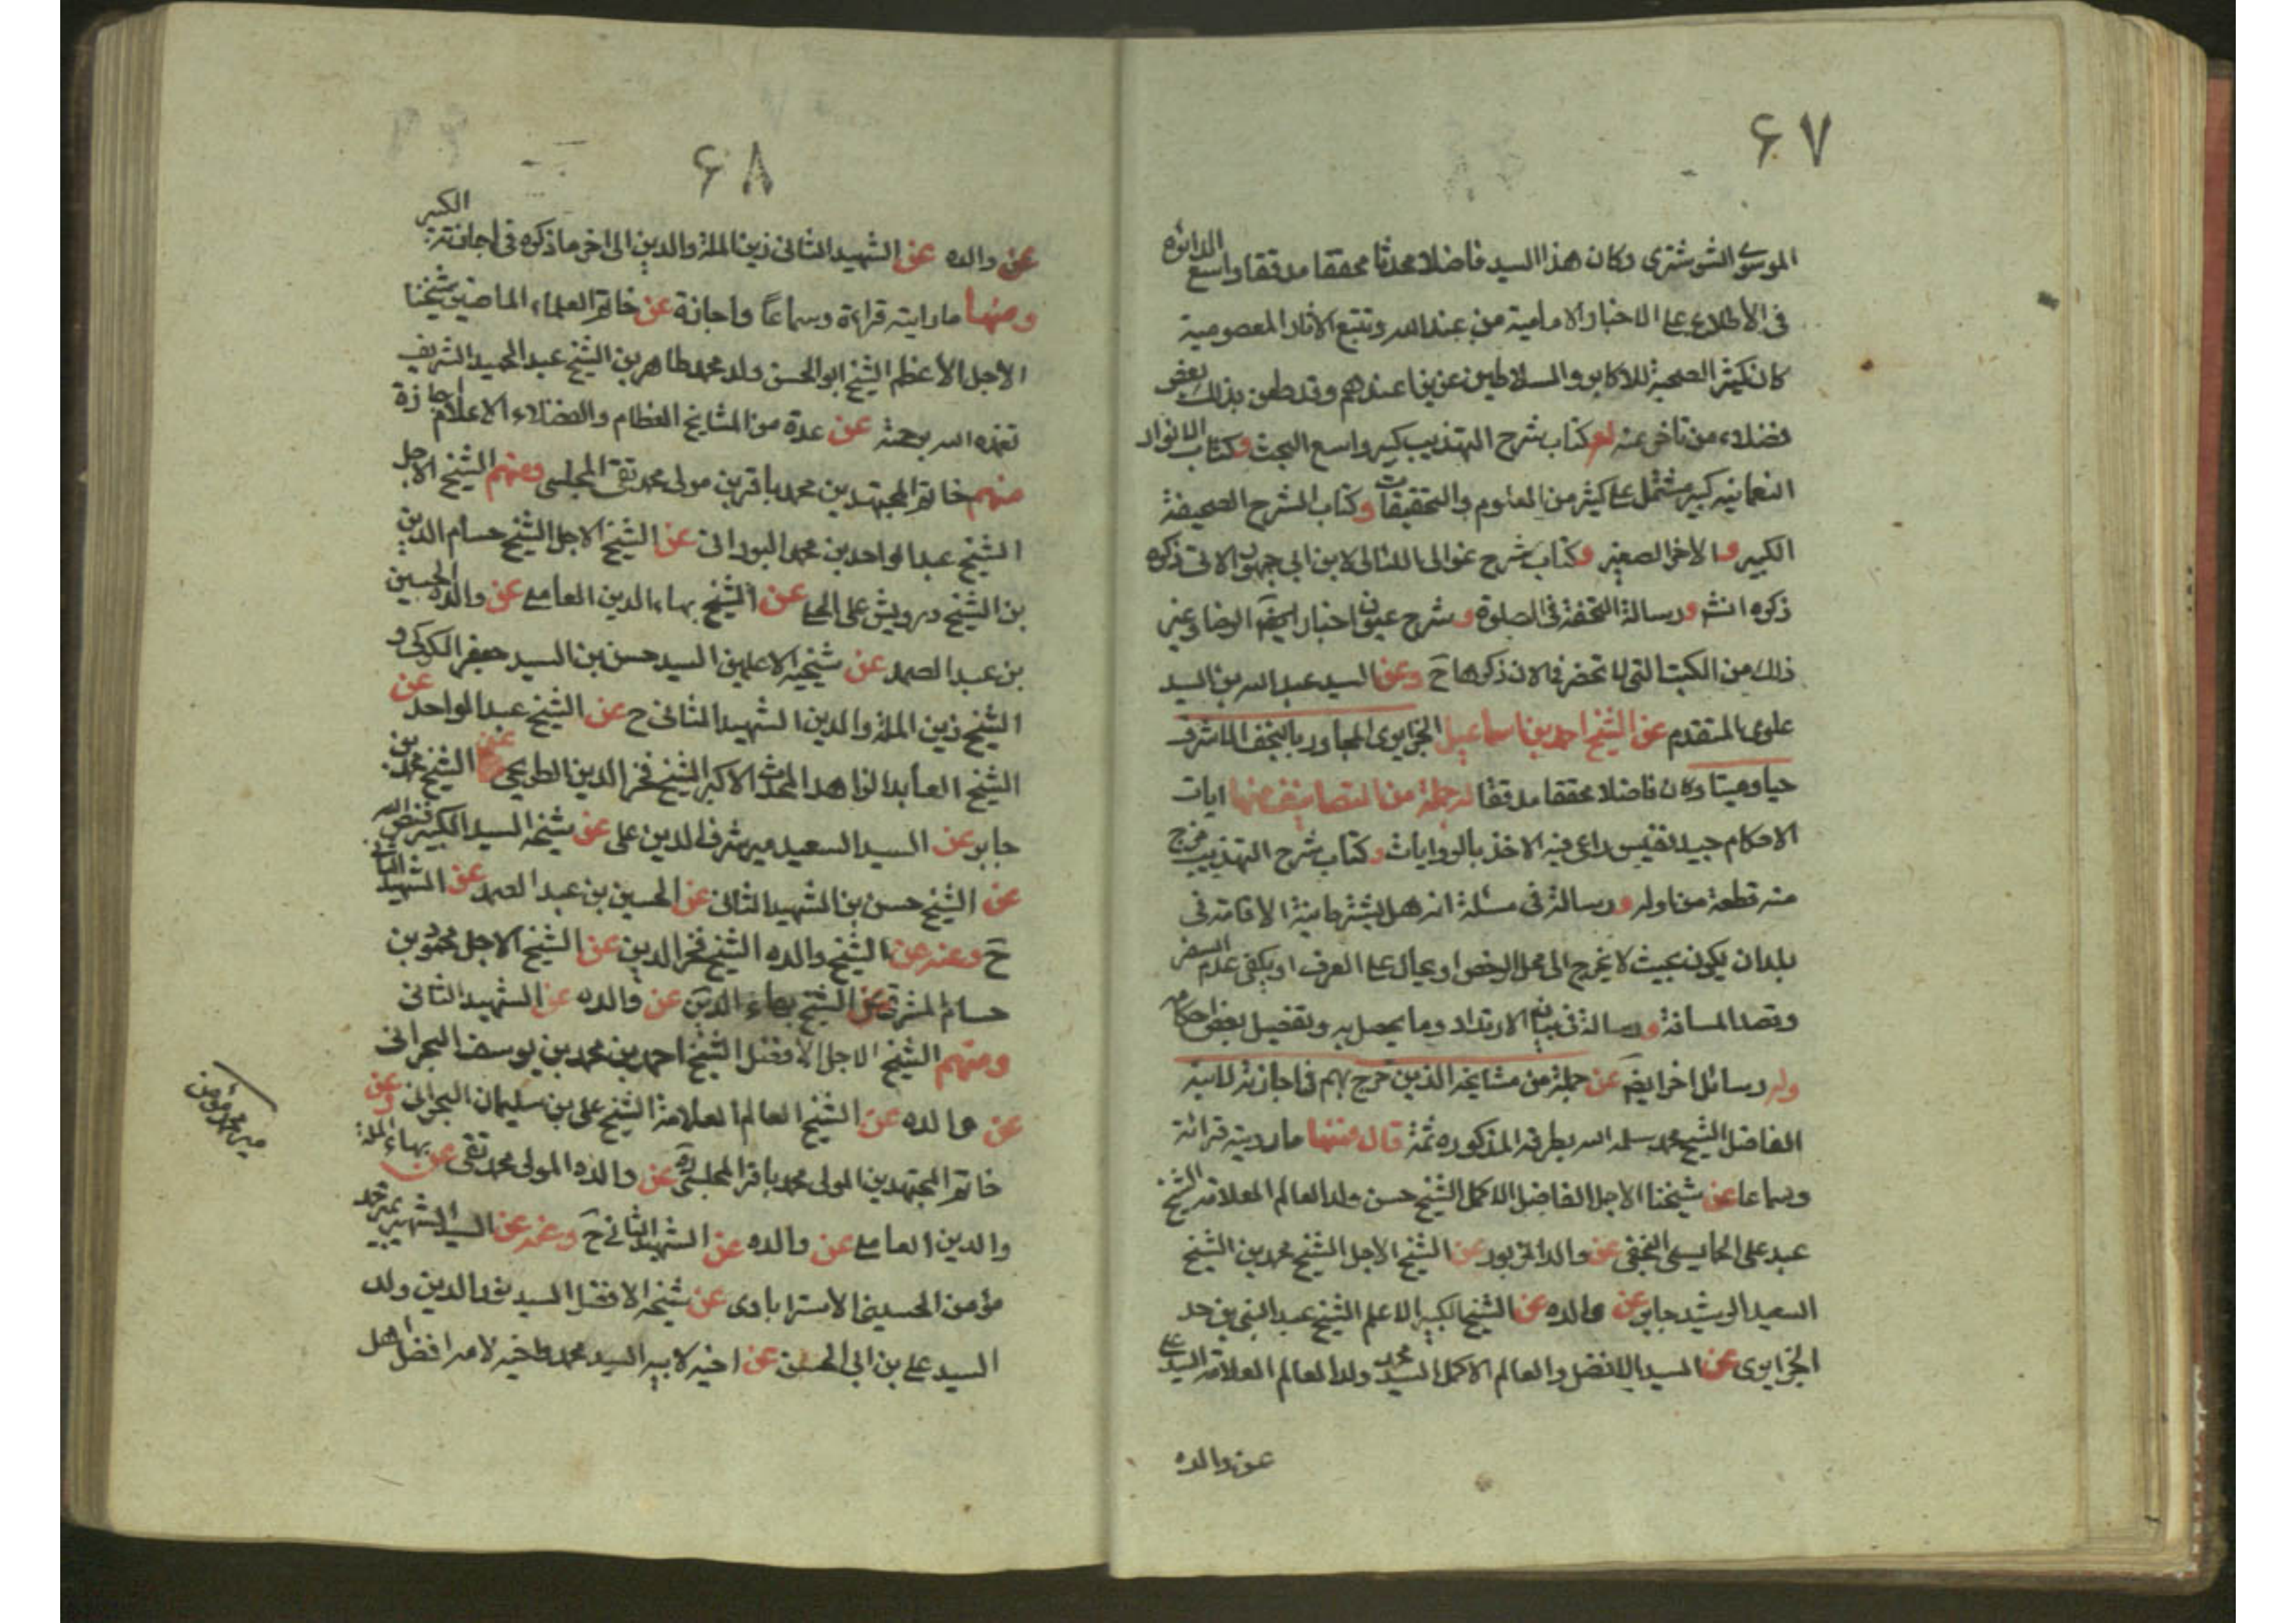 ۶۷
الموسوي الشوشترى وكان هذا السيد فاضلا محدثا محققا مدققا واسع الدائره
فى الأطلاع على الاخبار الامامية من عند الله وتتبع الاثار المعصومية
كان كثير الصحبة للاكابر والسلاطين عزيزا عندهم وقد طعن بذلك بعض
فضلاء من تاخر عنه له كتاب شرح التهذيب كبير واسع البحث وكتاب الانوار
النعمانيه كبير مشتمل على كثير من العلوم والتحقيقات وكتاب الشرح الصحيفة
الكبير والاخر الصغير وكتاب شرح عوالى اللئالى لابن ابي جمهور الاتى ذكره
ذكره انشـ ورسالة التحفة فى الصلوة وشرح عيون اخبار الرضا وغير
ذلك من الكتب التى لا تحضرنى الان ذكرها ح وعن السيد عبد الله بن السيد
علوى المتقدم عن الشيخ احمد بن اسماعيل الجزايرى المجاور بالنجف الاشرف
حيا وميتا وكان فاضلا محققا مدققا له جملة من التصانيف منها ايات
الاحكام جيد نفيس راعى فيه الاخذ بالروايات وكتاب شرح التهذيب خرج
منه قطعة من اوله ورسالة فى مسئلة انه هل يشترط نية الاقامة فى
بلدان يكون بحيث لا يخرج الى محل الرخص او يحال على العرف او يكفى عدم السفر
وقصد المسافة ورسالة فى بيان الارتداد وما يحصل به وتفصيل بعض احكامه
وله رسائل اخر ايضـ عن جملة من مشايخه الذين خرج بهم فى اجازته لابنه
الفاضل الشيخ محمد سلمه الله بطرقه المذكوره ثمة قال فمنها ما رويته قرائة
وسماعا عن شيخنا الاجل الفاضل الاكمل الشيخ حسن ولد العالم العلامة الشيخ
عبد على الخمايسى النجفى عن والده المزبور عن الشيخ الاجل الشيخ محمد بن الشيخ
السعيد الرشيد جابر عن والده عن الشيخ الكبير الاعلم الشيخ عبد النبى بن سعد
الجزايرى عن السيد الافضل والعالم الاكمل السيد محمد ولد العالم العلامة السيد على
عن والده
۶۸
عن والده عن الشهيد الثانى زين الملة والدين الى اخر ما ذكره فى اجازته الكبير
ومنها ما رايته قراءة وسماعًا واجازة عن خاتم العلماء الماضين شيخنا
الاجل الأعظم الشيخ ابو الحسن ولد محمد طاهر بن الشيخ عبد الحميد الشريف
تغمده الله برحمته عن عدة من المشايخ العظام والفضلاء الاعلام اجازة
منهم خاتم المجتهدين محمد باقر بن مولى محمد تقى المجلسى ومنهم الشيخ الاجل
الشيخ عبد الواحد بن محمد البورانى عن الشيخ الاجل الشيخ حسام الدين
بن الشيخ درويش على الحلى عن الشيخ بهاء الدين العاملى عن والده الحسين
بن عبد الصمد عن شيخيه الاعلمين السيد حسن بن السيد جعفر الكركى و
الشيخ زين الملة والدين الشهيد الثانى ح عن الشيخ عبد الواحد عن
الشيخ العابد الزاهد المحدث الاكبر الشيخ فخر الدين الطريحى عن الشيخ محمد بن
جابر عن السيد السعيد مير شرف الدين على عن شيخه السيد الكبير فيض الله
عن الشيخ حسن بن الشهيد الثانى عن الحسين بن عبد الصمد عن الشهيد الثانى
ح وعنه عن الشيخ والده الشيخ فخر الدين عن الشيخ الاجل محمود بن
حسام المشرقى عن الشيخ بهاء الدين عن والده عن الشهيد الثانى
ومنهم الشيخ الاجل الافضل الشيخ احمد بن محمد بن يوسف البحرانى
عن والده عن الشيخ العالم العلامة الشيخ على بن سليمان البحرانى وعن
خاتم المجتهدين المولى محمد باقر المجلسى عن والده المولى محمد تقى عن بهاء الملة
والدين العاملى عن والده عن الشهيد الثانى ح وعنه عن السيد الشهيد مير محمد
مؤمن الحسينى الاسترابادى عن شيخه الافضل السيد نور الدين ولد
السيد على بن ابى الحسن عن اخيه لابيه السيد محمد واخيه لامه افضل اهل
مير محمد مؤمن